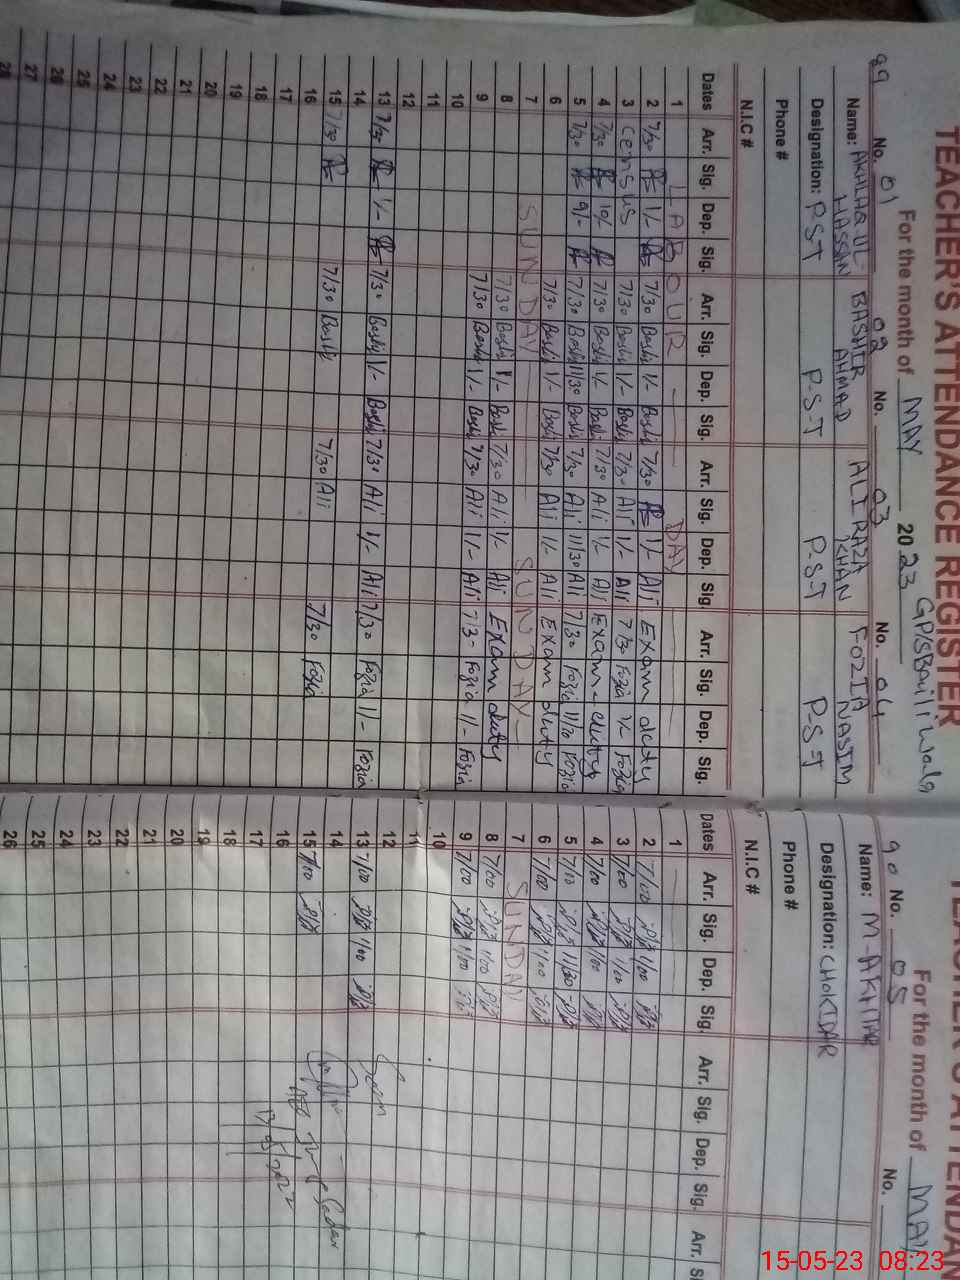 TEACHER'S ATTENDANCE REGISTER
For the month of MAY 2023 GP/SBailiwala
89 No. 01 02 No. 03 No. 04
Name: AKHLAQ UL- HASSAN BASHIR AHMAD ALI RAZA KHAN FOZIA NASIM
Designation: P.S.T P-S-T P-S-T P-S-T
Phone #
N.I.C #
Dates Arr. Sig. Dep. Sig. Arr. Sig. Dep. Sig. Arr. Sig. Dep. Sig. Arr. Sig. Dep. Sig.
1 LABOUR DAY
2 7/30 1/- 7/30 Bashi 1/- Bashi 7/30 1/- Ali Exam duty
3 Census 7/30 Bashi 1/- Bashi 7/30 Ali 1/- Ali 7/30 Fozia Fozia
4 7/30 10/- 7/30 Bashi 1/- Bashi 7/30 Ali 1/- Ali Exam-duty
5 7/30 9/- 7/30 Bashi 11/30 Bashi 7/30 Ali 11/30 Ali 7/30 Fozia Fozia
6 7/30 Bashi 1/- Bashi 7/30 Ali 1/- Ali Exam duty
7 SUNDAY SUNDAY
8 7/30 Bashi 1/- Bashi 7/30 Ali 1/- Ali Exam duty
9 7/30 Bashi 1/- Bashi 7/30 Ali 1/- Ali 7/3- Fozia 11/- Fozia
10
11
12
13 7/30 1/- 7/30 Bashi 1/- Bashi 7/30 Ali 1/- Ali 7/30 Fozia 11/- Fozia
14
15 7/30 7/30 Bashi 7/30 Ali 7/30 Fozia
16
17
18
19
20
21
22
23
24
25
26
27
28
TEACHER'S ATTENDAN
For the month of MAY
90 No. 05 No.
Name: M-AKHTAR
Designation: CHOKIDAR
Phone #
N.I.C #
Dates Arr. Sig. Dep. Sig. Arr. Sig. Dep. Sig. Arr.
1
2 7/00 1/00
3 7/00 1/00
4 7/00 1/00
5 7/00 11/30
6 7/00 1/00
7 SUNDAY
8 7/00 1/00
9 7/00 1/00
10
11
12 Seen
13 7/00 1/00
14
15 7/00
16
17
18
19
20
21
22
23
24
25
26
15-05-23 08:23